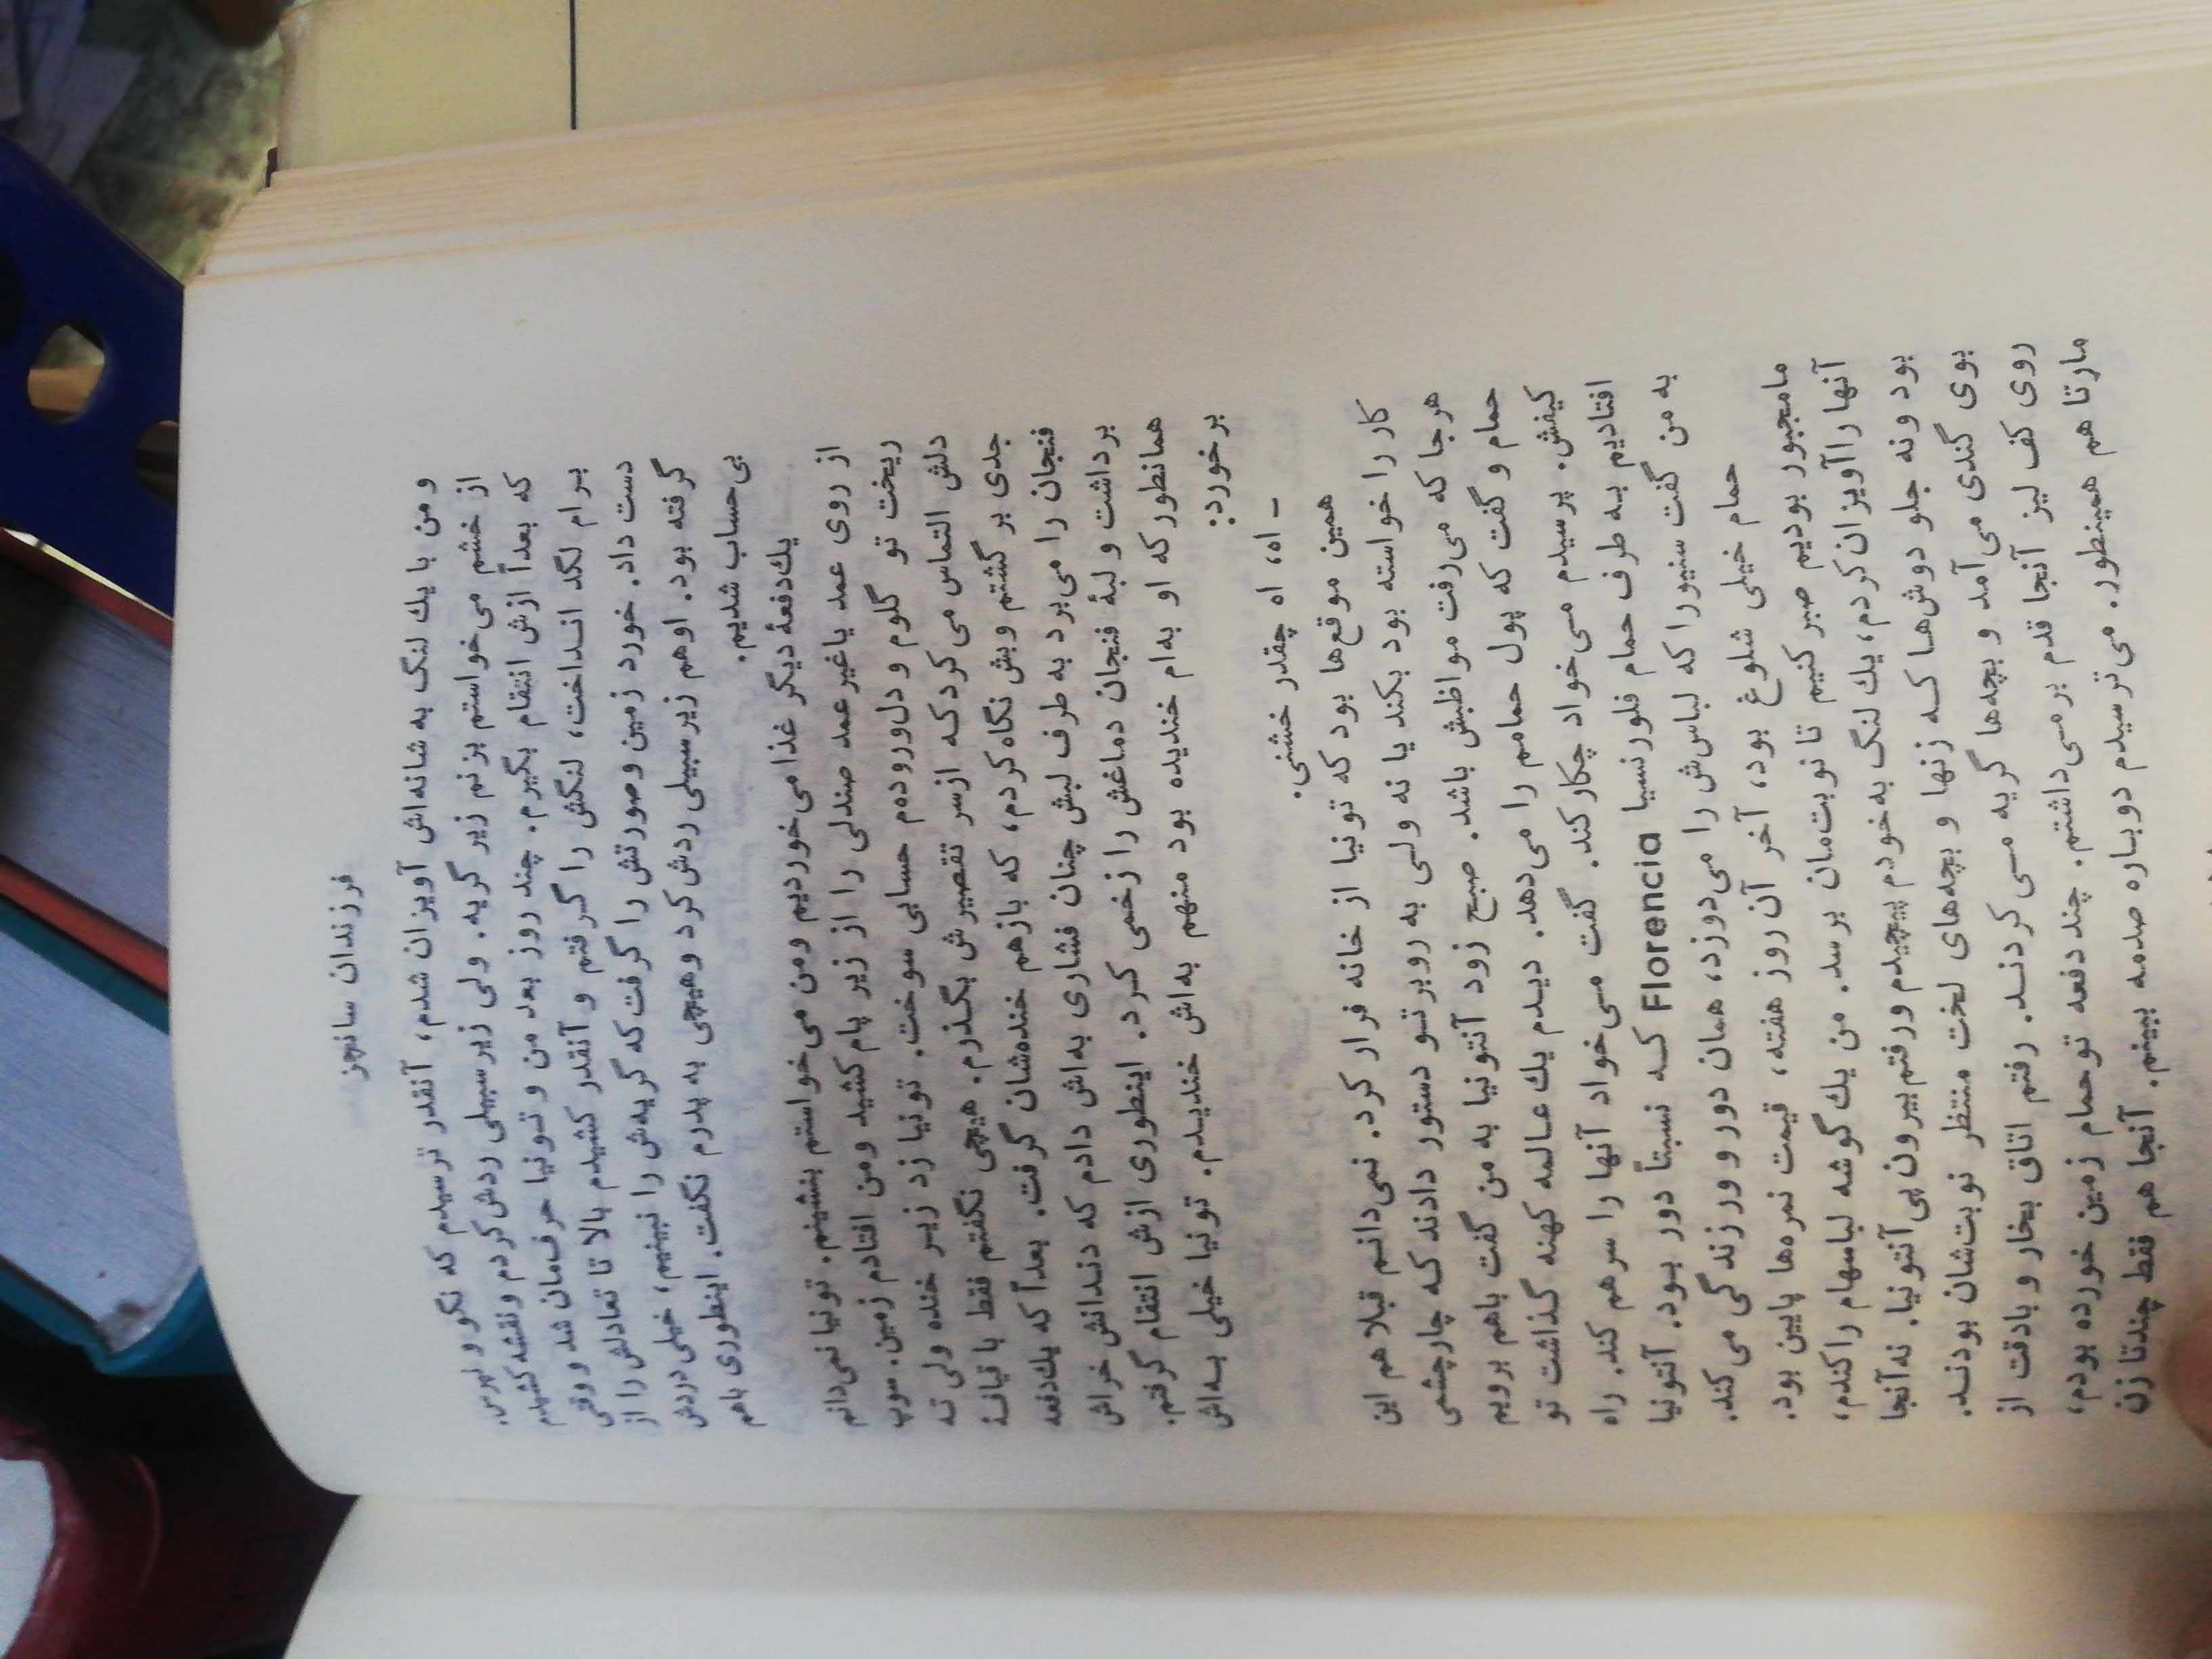 فرزندان سانچز
و من با یك لنگ به شانه‌اش آویزان شدم، آنقدر ترسیدم که نگو و نپرس.
از خشم می‌خواستم بزنم زیر گریه. ولی زیرسبیلی ردش کردم ونقشه کشیدم
که بعداً ازش انتقام بگیرم. چند روز بعد من و تونیا حرف‌مان شد و وقتی
برام لگد انداخت، لنگش را گرفتم و آنقدر کشیدم بالا تا تعادلش را از
دست داد. خورد زمین وصورتش را گرفت که گریه‌ش را نبینم، خیلی دردش
گرفته بود. اوهم زیرسبیلی ردش کرد وهیچی به پدرم نگفت. اینطوری باهم
بی‌حساب شدیم.
یك‌دفعهٔ دیگر غذا می‌خوردیم ومن می‌خواستم بنشینم. تونیا نمی‌دانم
از روی عمد یاغیرعمد صندلی را از زیر پام کشید ومن افتادم زمین. سوپ
ریخت تو گلوم و دل‌وروده‌م حسابی سوخت. تونیا زد زیر خنده ولی ته
دلش التماس می‌کردکه ازسر تقصیرش بگذرم. هیچی نگفتم فقط با قیافهٔ
جدی بر گشتم وبش نگاه کردم، که بازهم خنده‌شان گرفت. بعدآ که یك‌دفعه
فنجان را می‌برد به طرف لبش چنان فشاری به‌اش دادم که دندانش خراش
برداشت و لبهٔ فنجان دماغش را زخمی کرد. اینطوری ازش انتقام گرفتم.
همانطورکه او به‌ام خندیده بود منهم به‌اش خندیدم. تونیا خیلی به‌اش
برخورد:
ـ اه، اه چقدر خشنی.
همین موقع‌ها بود که تونیا از خانه فرار کرد. نمی‌دانم قبلا هم این
کار را خواسته بود بکند یا نه ولی به روبرتو دستور دادند که چارچشمی
هرجا که می‌رفت مواظبش باشد. صبح زود آنتونیا به من گفت باهم برویم
حمام و گفت که پول حمامم را می‌دهد. دیدم یك عالمه کهنه گذاشت تو
کیفش. پرسیدم می‌خواد چکارکند. گفت می‌خواد آنها را سرهم کند. راه
افتادیم به طرف حمام فلورنسیا Florencia که نسبتاً دور بود. آنتونیا
به من گفت سنیورا که لباس‌ش را می‌دوزد، همان دور و ورزندگی می‌کند.
حمام خیلی شلوغ بود، آخر آن روز هفته، قیمت نمره‌ها پایین بود.
مامجبور بودیم صبر کنیم تا نوبت‌مان برسد. من یك گوشه لباسهام را کندم،
آنها را آویزان کردم، یك لنگ به‌خودم پیچیدم ورفتم بیرون پی آنتونیا. نه آنجا
بود ونه جلو دوش‌ها که زنها و بچه‌های لخت منتظر نوبت‌شان بودند.
بوی گندی می‌آمد و بچه‌ها گریه می‌کردند. رفتم اتاق بخار و بادقت از
روی کف لیز آنجا قدم برمی‌داشتم. چند دفعه توحمام زمین خورده بودم،
مارتا هم همینطور. می‌ترسیدم دوباره صدمه ببینم. آنجا هم فقط چندتا زن